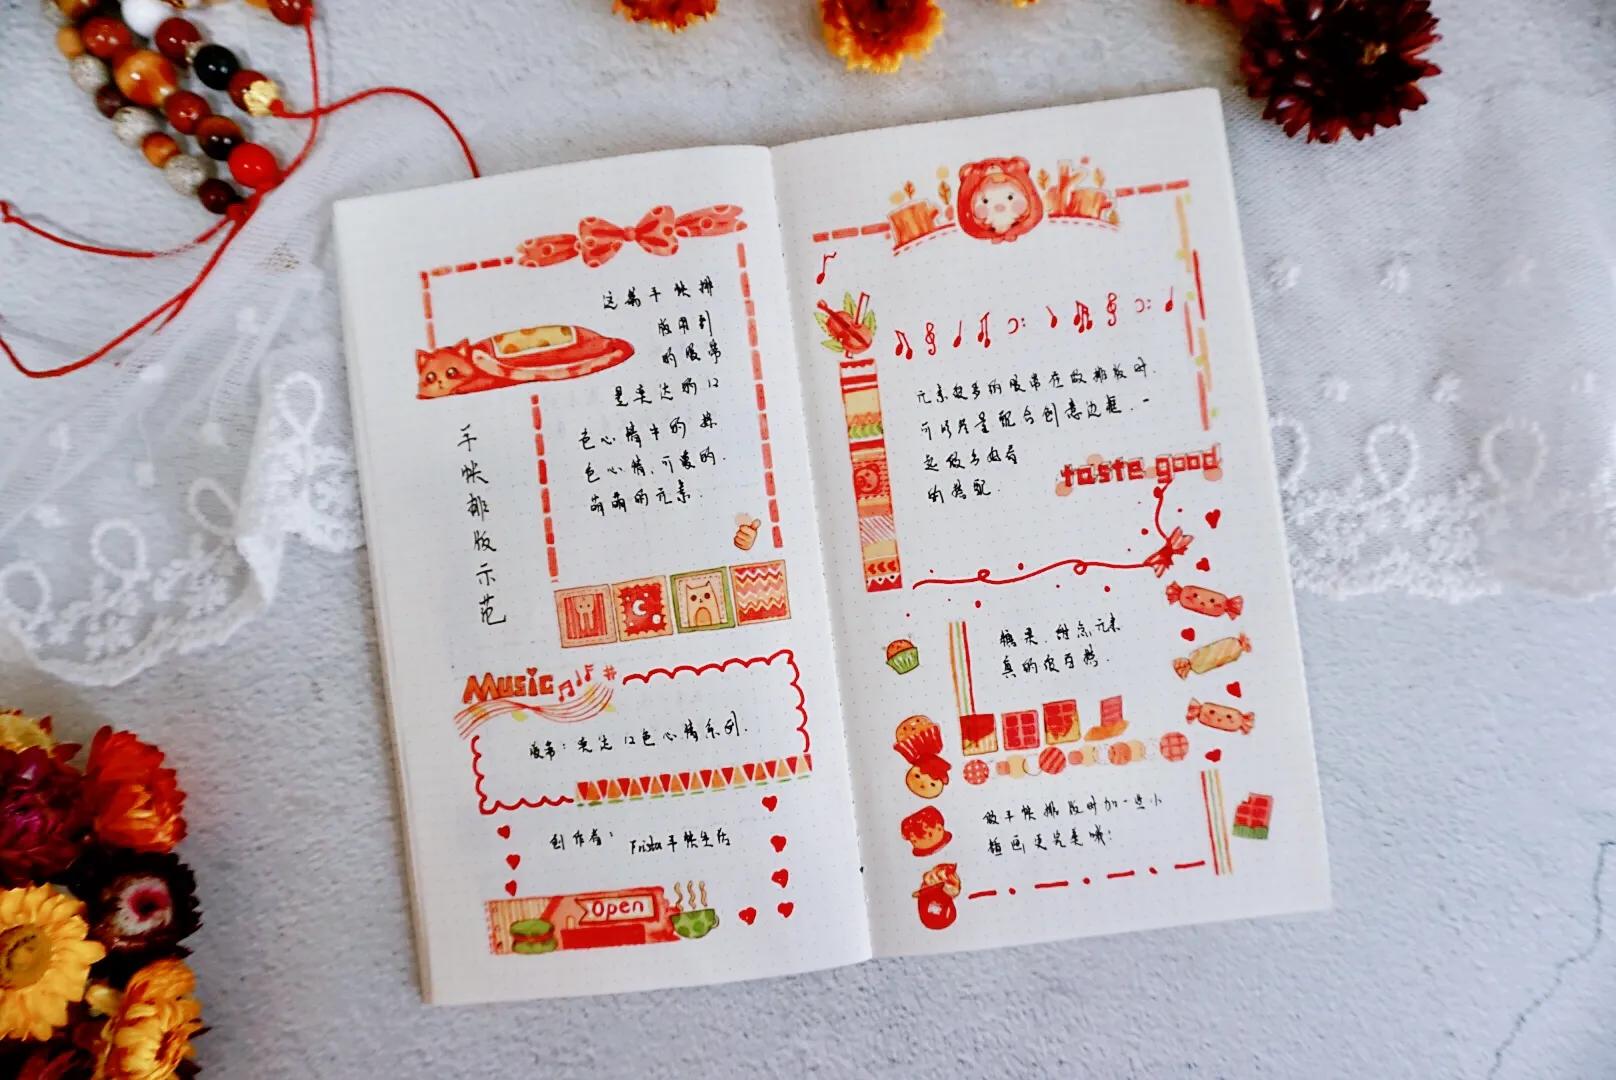 手帐排版示范
这篇手帐排
版用到
的胶带
是奕达的12
色心情中的 
色心情,可爱的.
萌萌的元素.
Music
胶带:奕达12色心情系列.
创作者: Frista手帐生活
Open
元素较多的胶带在做排版时.
可以尽量配合创意边框.一
起做多
的搭配.
taste good
糖果.甜点元素
真的很百搭.
做手帐排版时加一些小
插画更完美哦!